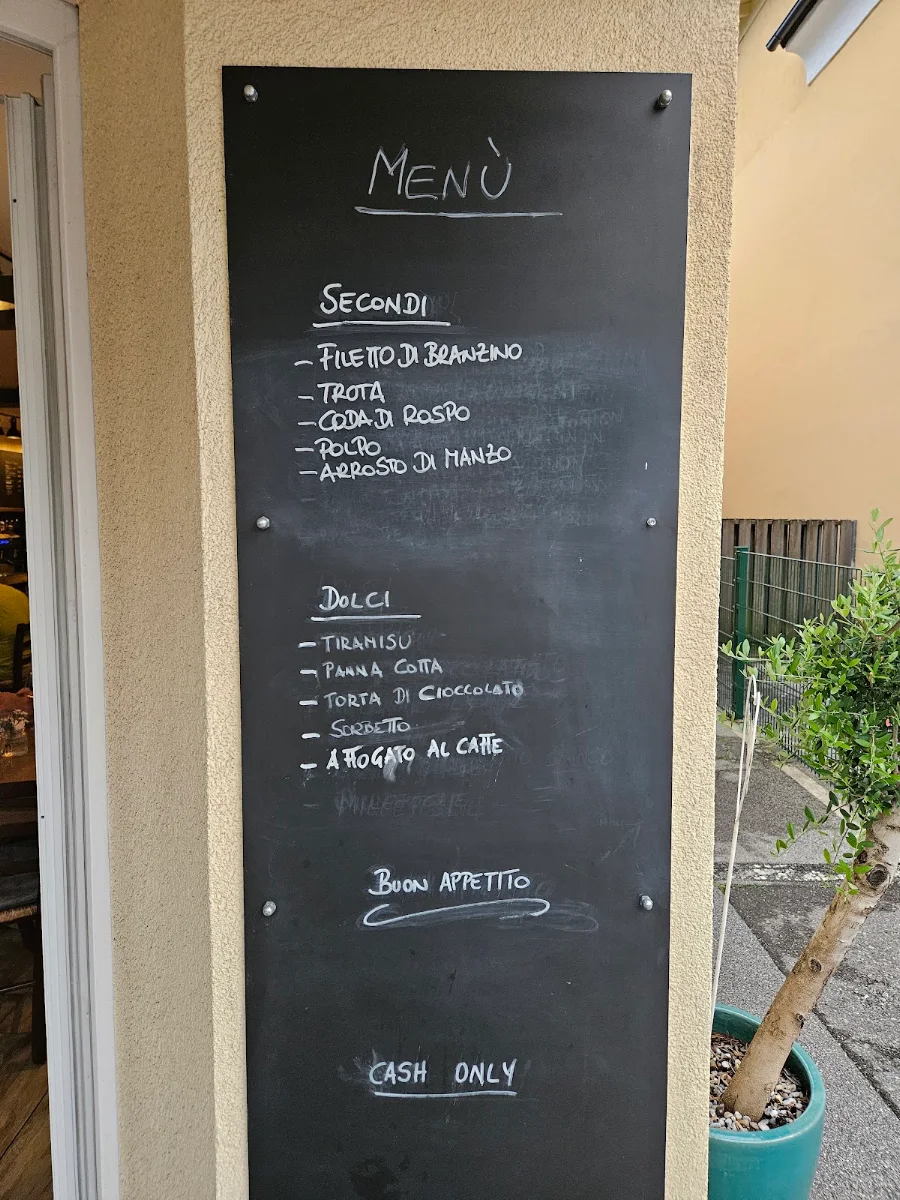 MENÙ
SECONDI
- FILETTO DI BRANZINO
- TROTA
- CODA DI ROSPO
- POLPO
- ARROSTO DI MANZO
DOLCI
- TIRAMISU
- PANNA COTTA
- TORTA DI CIOCCOLATO
- SORBETTO
- AFFOGATO AL CAFFE
BUON APPETITO
CASH ONLY